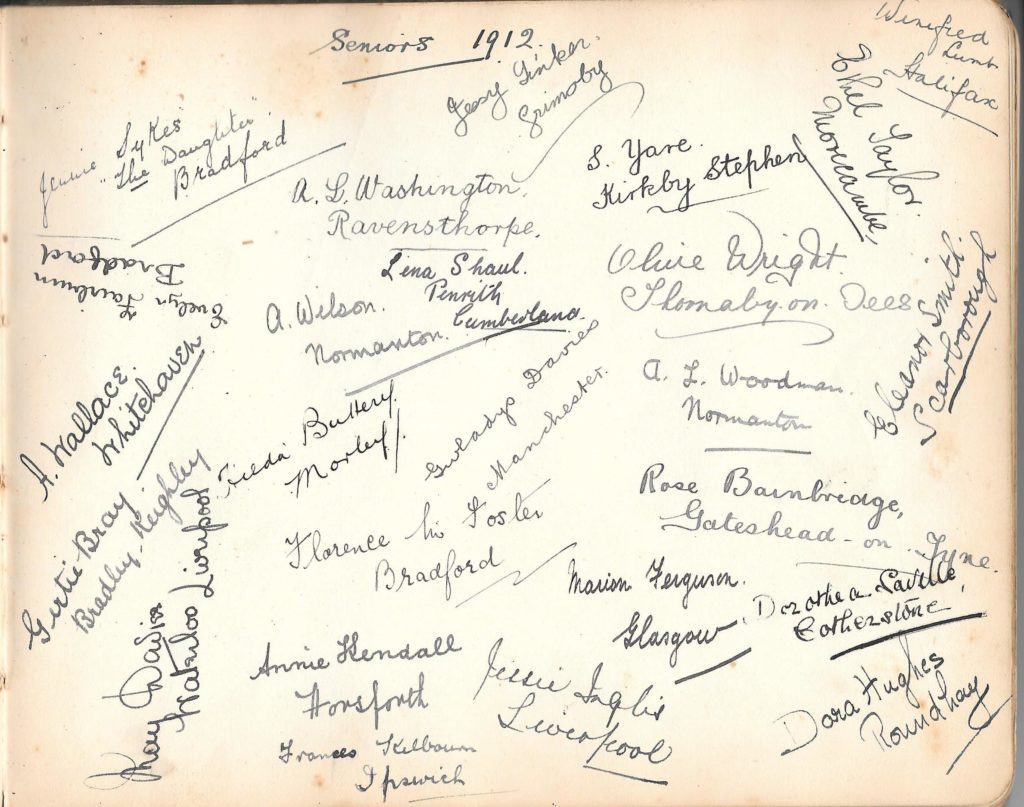 Seniors 1912.
Winifred
Lumb
Halifax
Ethel Taylor.
Morecambe,
Jessy Tinker.
Grimsby
Jennie Sykes
"The Daughter"
Bradford
S. Yare.
Kirkby Stephen
A. L. Washington.
Ravensthorpe.
Evelyn Fairburn
Bradford
Lena Shaul.
Penrith
Cumberland.
Olive Wright.
Thornaby-on-Tees
Eleanor Smith.
Scarborough
A. Wilson.
Normanton.
A. Wallace.
Whitehaven
A. L. Woodman.
Normanton
Hilda Buttery.
Morley
Gwladys Davies
Manchester.
Gertie Bray
Bradley, Keighley
Rose Bainbridge,
Gateshead-on-Tyne.
Florence M. Foster
Bradford
Marion Ferguson.
Glasgow
Dorothea Saville,
Cotherstone
Davies
Waterloo Liverpool
Annie Kendall
Horsforth
Jessie Inglis
Liverpool
Dora Hughes
Roundhay
Frances Kilbourn
Ipswich